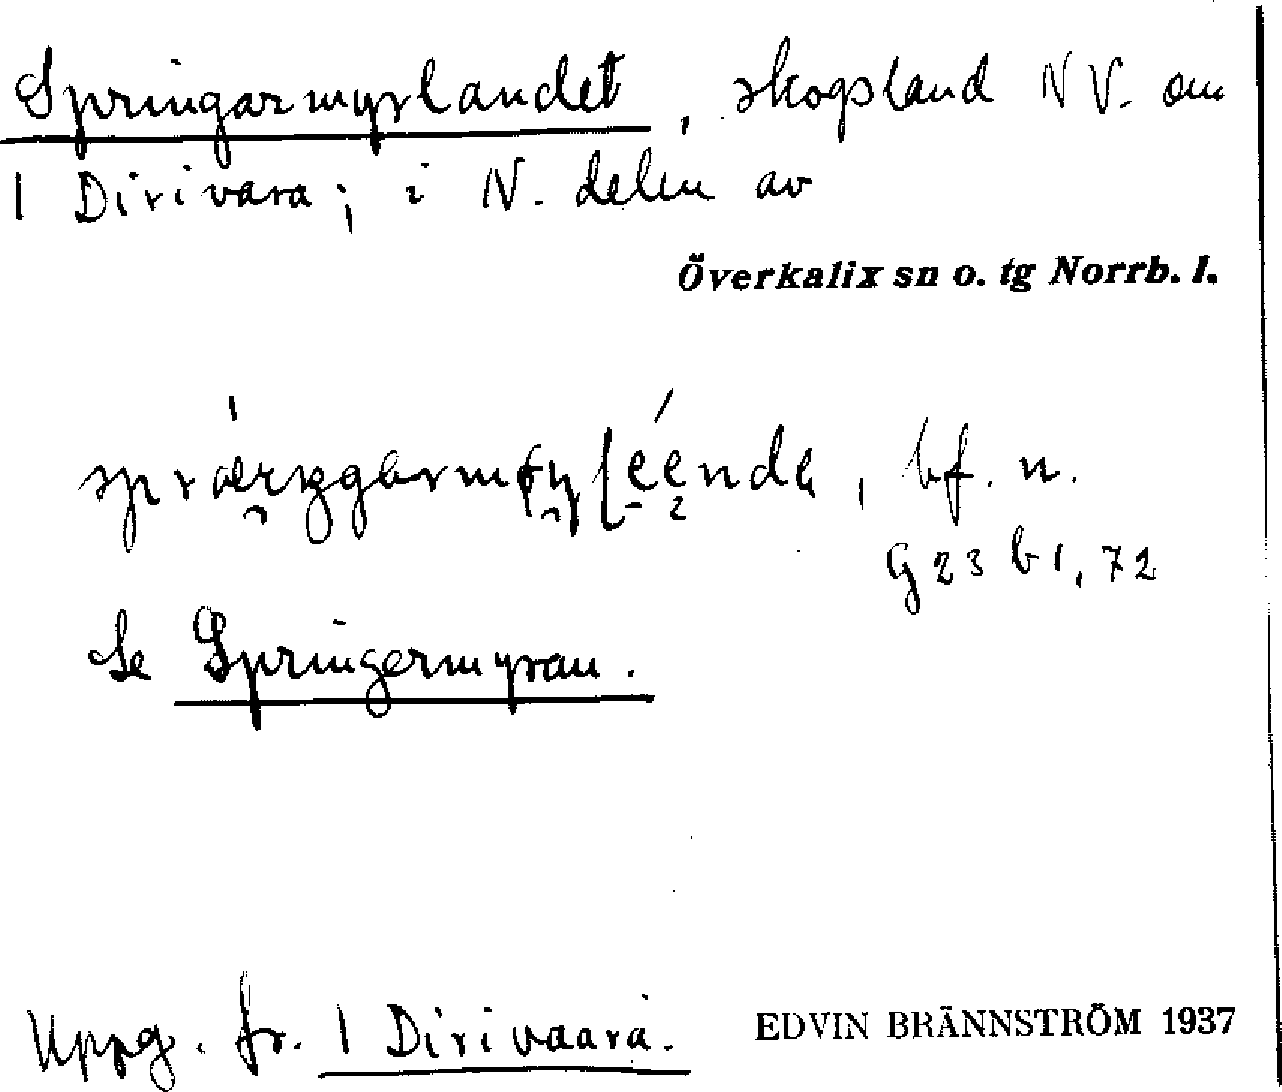 Springarmyrlandet, skogsland NV. om
1 Dirivara; i N. delen av
Överkalix sn o. tg Norrb. l.
bf. n.
G 23 b 1, 72
Se Springermyran.
Uppg. fr. 1 Dirivaara. EDVIN BRÄNNSTRÖM 1937